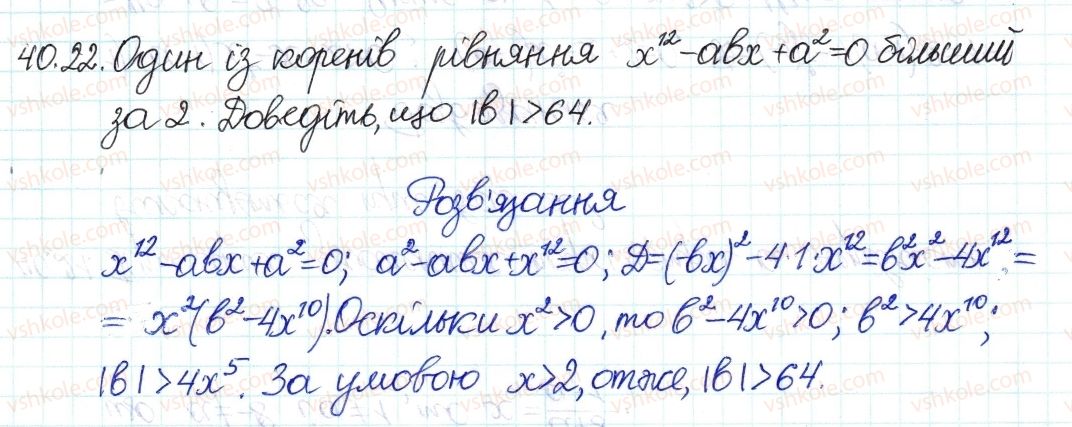 40.22. Один із коренів рівняння x¹² - abx + a² = 0 більший
за 2. Доведіть, що |b| > 64.
Розв'язання
x¹² - abx + a² = 0; a² - abx + x¹² = 0; D = (-bx)² - 4·1·x¹² = b²x² - 4x¹² =
= x²(b² - 4x¹⁰). Оскільки x² > 0, то b² - 4x¹⁰ > 0; b² > 4x¹⁰;
|b| > 4x⁵. За умовою x > 2, отже, |b| > 64.
vshkole.com